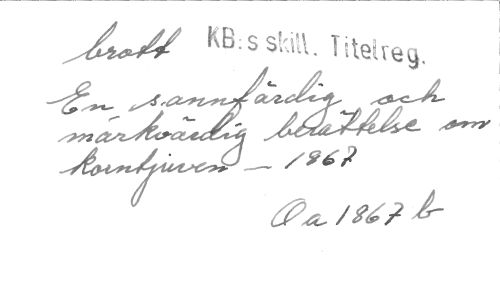 brott KB:s skill. Titelreg.
En sannfärdig och
märkvärdig berättelse om
korntjuven — 1867
Oa 1867 b